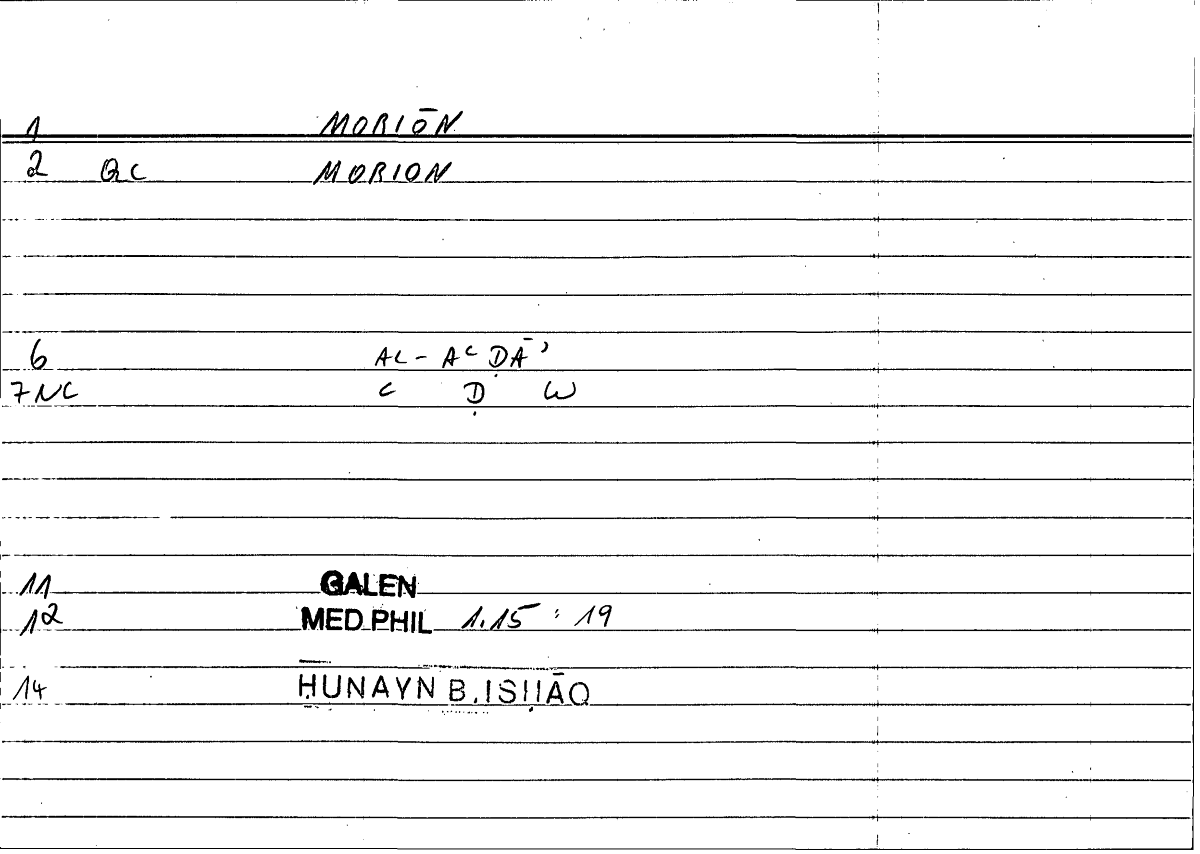 1 MORIŌN
2 QC MORION
6 AL-AʿḌĀʾ
7NC ʿ Ḍ W
11 GALEN
12 MED PHIL 1.15 : 19
14 ḤUNAYN B. ISḤĀQ